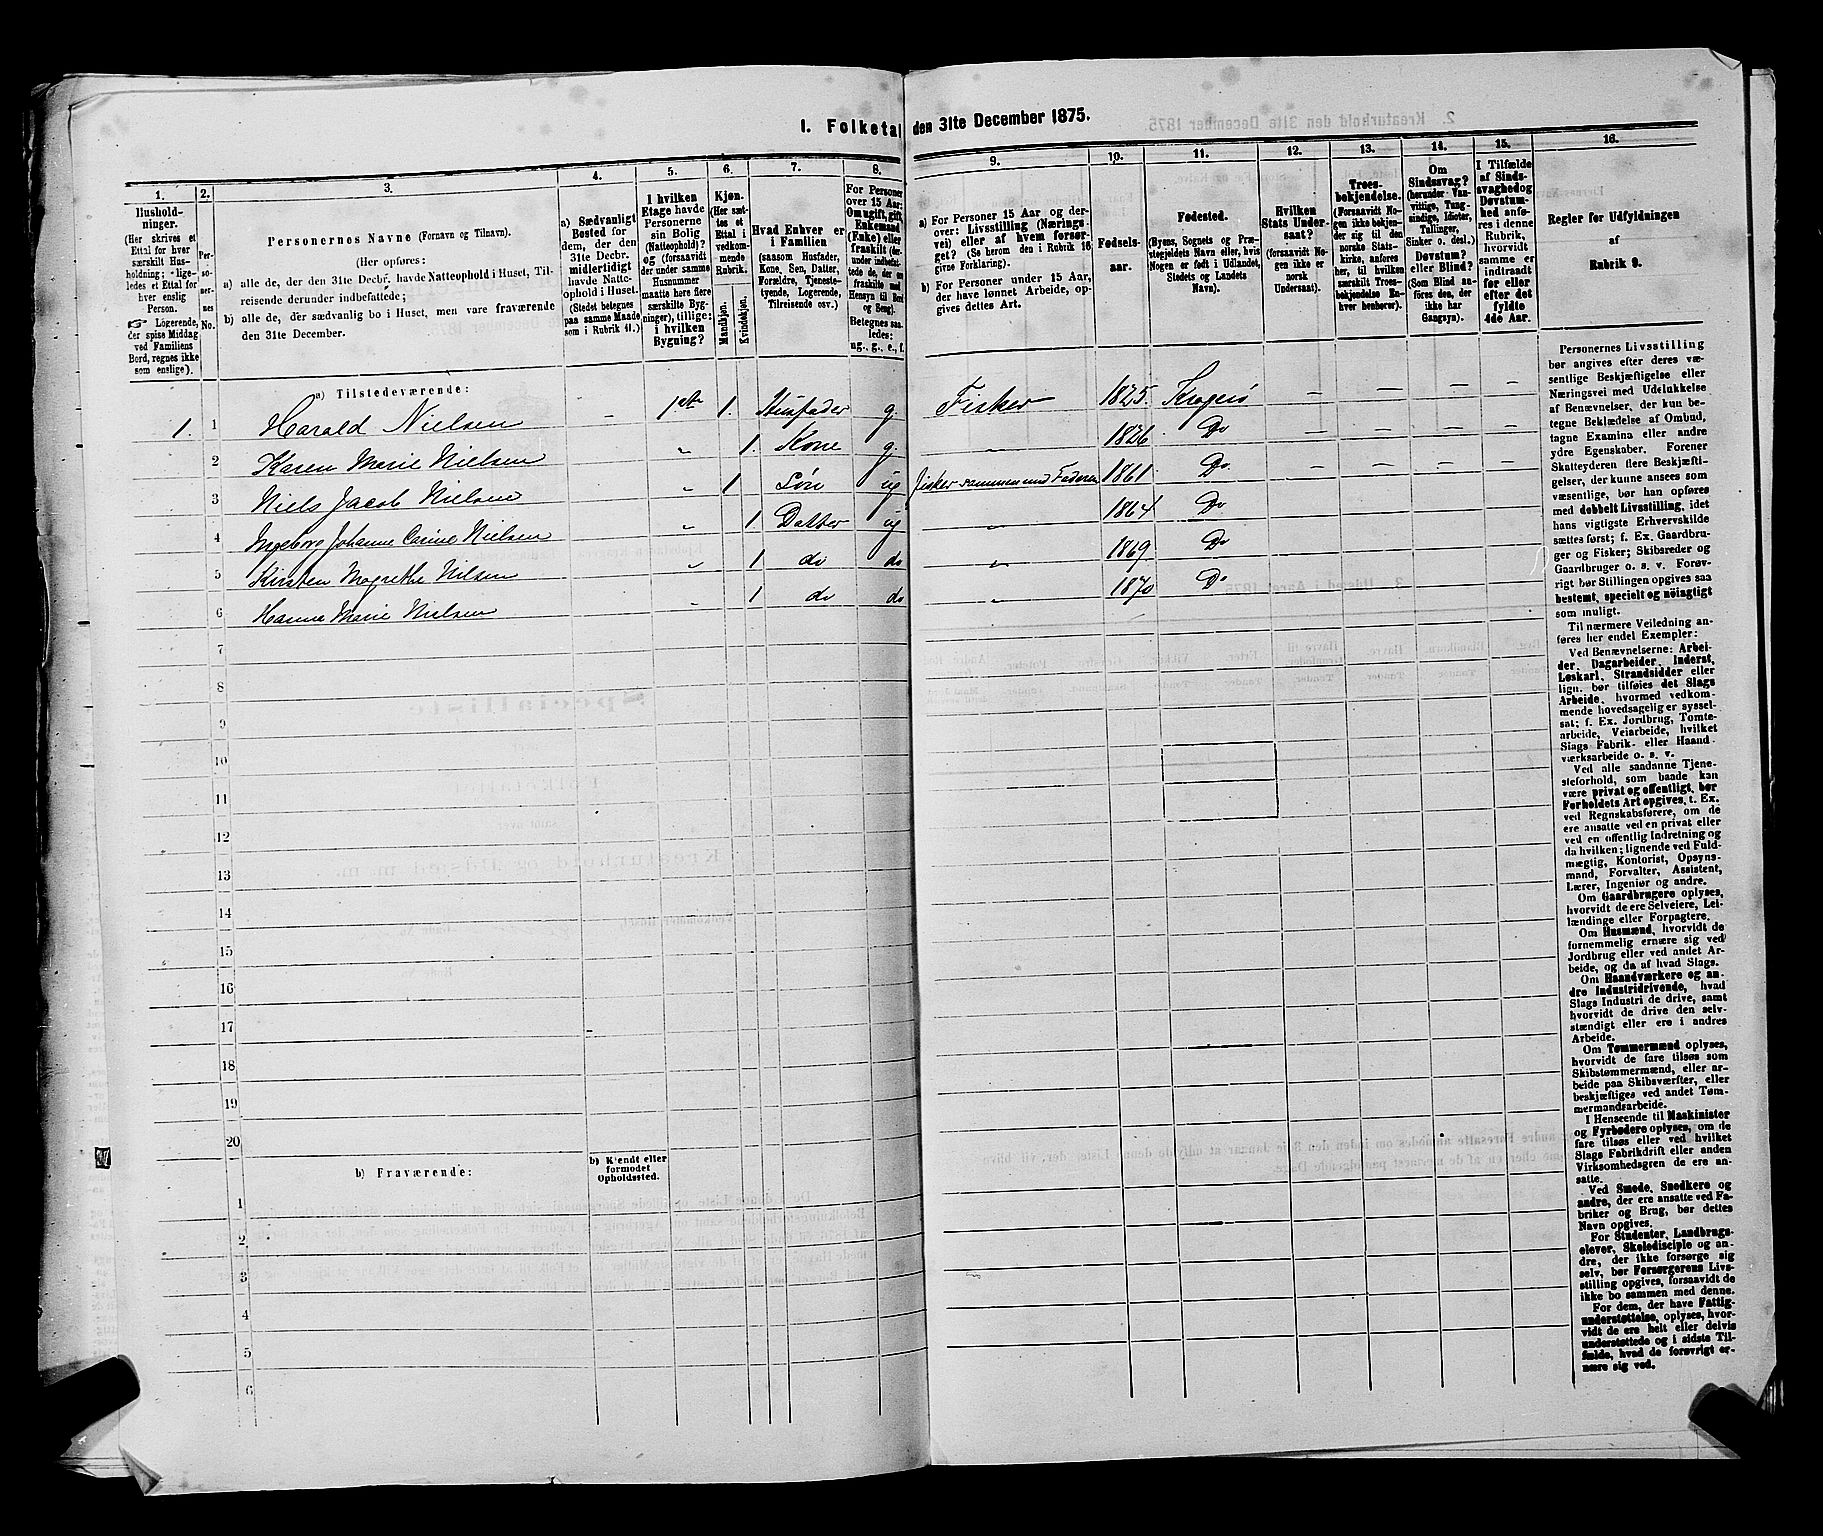 I. Folketal den 31te December 1875.
1.
Hushold-
ninger.
(Her skrives et
Ettal for hver
særskilt Hus-
holdning; lige-
ledes et Ettal for
hver enslig
Person.
☞ Logerende,
der spise Middag
ved Familiens
Bord, regnes ikke
som enslige).
2.
Per-
so-
ner-
nes
No.
3.
Personernes Navne (Fornavn og Tilnavn).
(Her opføres:
a) alle de, der den 31te Decbr. havde Natteophold i Huset, Til-
reisende derunder indbefattede;
b) alle de, der sædvanlig bo i Huset, men vare fraværende
den 31te December.
4.
a) Sædvanligt
Bosted for
dem, der den
31te Decbr.
midlertidigt
havde Natte-
ophold i Huset.
(Stedet betegnes
paa samme Maade
som i Rubrik 11.)
5.
I hvilken
Etage havde
Personerne
sin Bolig
(Natteophold)?
og (forsaavidt
der under samme
Husnummer
maatte høre flere
særskilte Byg-
ninger), tillige:
i hvilken
Bygning?
6.
Kjøn.
(Her sæt-
tes
Ettal i
vedkom-
mende
Rubrik.
Mandkjøn.
Kvindekjøn.
7.
Hvad Enhver er
i Familien
(saasom Husfader,
Kone, Søn, Datter,
Forældre, Tjeneste-
tyende, Logerende,
Tilreisende osv.)
8.
For Personer
over 15 Aar:
Om ugift, gift,
Enkemand
(Enke) eller
fraskilt
Betegnes saa-
ledes:
ug., g., e., f.
9.
a) For Personer 15 Aar og der-
over: Livsstilling (Nærings-
vei) eller af hvem forsør-
get? (Se herom den i Rubrik 16
givne Forklaring).
b) For Personer under 15 Aar,
der have lønnet Arbeide, op-
gives dettes Art.
10.
Fødsels-
aar.
11.
Fødested.
(Byens, Sognets og Præ-
stegjeldets Navn eller, hvis
Nogen er født i Udlandet,
Stedets og Landets
Navn).
12.
Hvilken
Stats Under-
saat?
(forsaavidt No-
gen ikke er
norsk
Undersaat).
13.
Troes-
bekjendelse.
(Forsaavidt No-
gen ikke bekjen-
der sig til den
norske Stats-
kirke, anføres
her, til hvilken
særskilt Troes-
bekjendelse En-
hver henhører).
14.
Om
Sindssvag?
(herunder Van-
vittige, Tung-
sindige, Idioter,
Tullinger,
Sinker o. desl.)
Døvstum?
eller Blind?
(Som Blind an-
føres den, der
ikke har
Gangsyn).
15.
I Tilfælde
af Sinds-
svaghed og
Døvstum-
hed anfø-
res i denne
Rubrik,
hvorvidt
samme er
indtraadt
før eller
efter det
fyldte
4de Aar.
16.
Regler for Udfyldningen
af
Rubrik 9.
a) Tilstedeværende:
1. 1 Harald Nielsen – 1 et. 1. Husfader g. Fisker 1825. Kragerø – – – –
2 Karen Marie Nielsen „ 1. Kone g. 1826 Do – – – –
3 Niels Jacob Nielsen „ 1 Søn ug fisker sammen med Faderen 1861. Do. – – – –
4 Ingeborg Johanne Carine Nielsen „ 1. Datter ug „ 1864 Do
5 Kirsten Magrethe Nilsen „ 1 do do „ 1869 Do
6 Hanne Marie Nielsen „ 1 do do „ 1870 Do
7
8
9
10
11
12
13
14
15
16
17
18
19
20
b) Fraværende:
b) Kjendt eller
formodet
Opholdssted.
1
2
3
4
5
6
Personernes Livsstilling
bør angives efter deres væ-
sentlige Beskjæftigelse eller
Næringsvei med Udelukkelse
af Benævnelser, der kun be-
tegne Beklædelse af Ombud,
tagne Examina eller andre
ydre Egenskaber. Forener
Skatteyderen flere Beskjæfti-
gelser, der kunne ansees som
væsentlige, bør han opføres
med dobbelt Livsstilling, idet
hans vigtigste Erhvervskilde
sættes først; f. Ex. Gaardbru-
ger og Fisker; Skibsreder og
Gaardbruger o. s. v. Forøv-
rigt bør Stillingen opgives saa
bestemt, specielt og nøiagtigt
som muligt.
Til nærmere Veiledning an-
føres her endel Exempler:
Ved Benævnelserne: Arbei-
der, Dagarbeider, Inderst,
Løskarl, Strandsidder eller
lign. bør tilføies det Slags
Arbeide, hvormed vedkom-
mende hovedsagelig er syssel-
sat; f. Ex. Jordbrug, Tomte-
arbeide, Veiarbeide, hvilket
Slags Fabrik- eller Haand-
værksarbeide o. s. v.
Ved alle saadanne Tjene-
steforhold, som baade kan
være privat og offentligt, bør
Forholdets Art opgives, t. Ex.
ved Regnskabsførere, om de
ere ansatte ved en privat eller
ved en offentlig Indretning og
da hvilken; lignende ved Fuld-
mægtig, Kontorist, Opsyns-
mand, Forvalter, Assistent,
Lærer, Ingeniør og andre.
Om Gaardbrugere oplyses,
hvorvidt de ere Selveiere, Lei-
lændinge eller Forpagtere.
Om Husmænd, hvorvidt de
fornemmelig ernære sig ved
Jordbrug eller ved andet Ar-
beide, og da af hvad Slags.
Om Haandværkere og an-
dre Industridrivende, hvad
Slags Industri de drive, samt
hvorvidt de drive den selv-
stændigt eller ere i andres
Arbeide.
Om Tømmermænd oplyses,
hvorvidt de fare tilsøs som
Skibstømmermænd, eller ar-
beide paa Skibsværfter, eller
beskjæftiges ved andet Tøm-
mermandsarbeide.
I Henseende til Maskinister
og Fyrbødere oplyses, om de
fare tilsøs eller ved hvilket
Slags Fabrikdrift eller anden
Virksomhedsgren de ere an-
satte.
Ved Smede, Snedkere og
andre, der ere ansatte ved Fa-
briker og Brug, bør dettes
Navn opgives.
For Studenter, Landbrugs-
elever, Skoledisciple og an-
dre, der ikke forsørge sig
selv, bør Forsørgerens Livs-
stilling opgives, forsaavidt de
ikke bo sammen med denne.
For dem, der have Fattig-
understøttelse, oplyses, hvor-
vidt de ere helt eller delvis
understøttede og i sidste Til-
fælde, hvad de forøvrigt er-
nære sig ved.